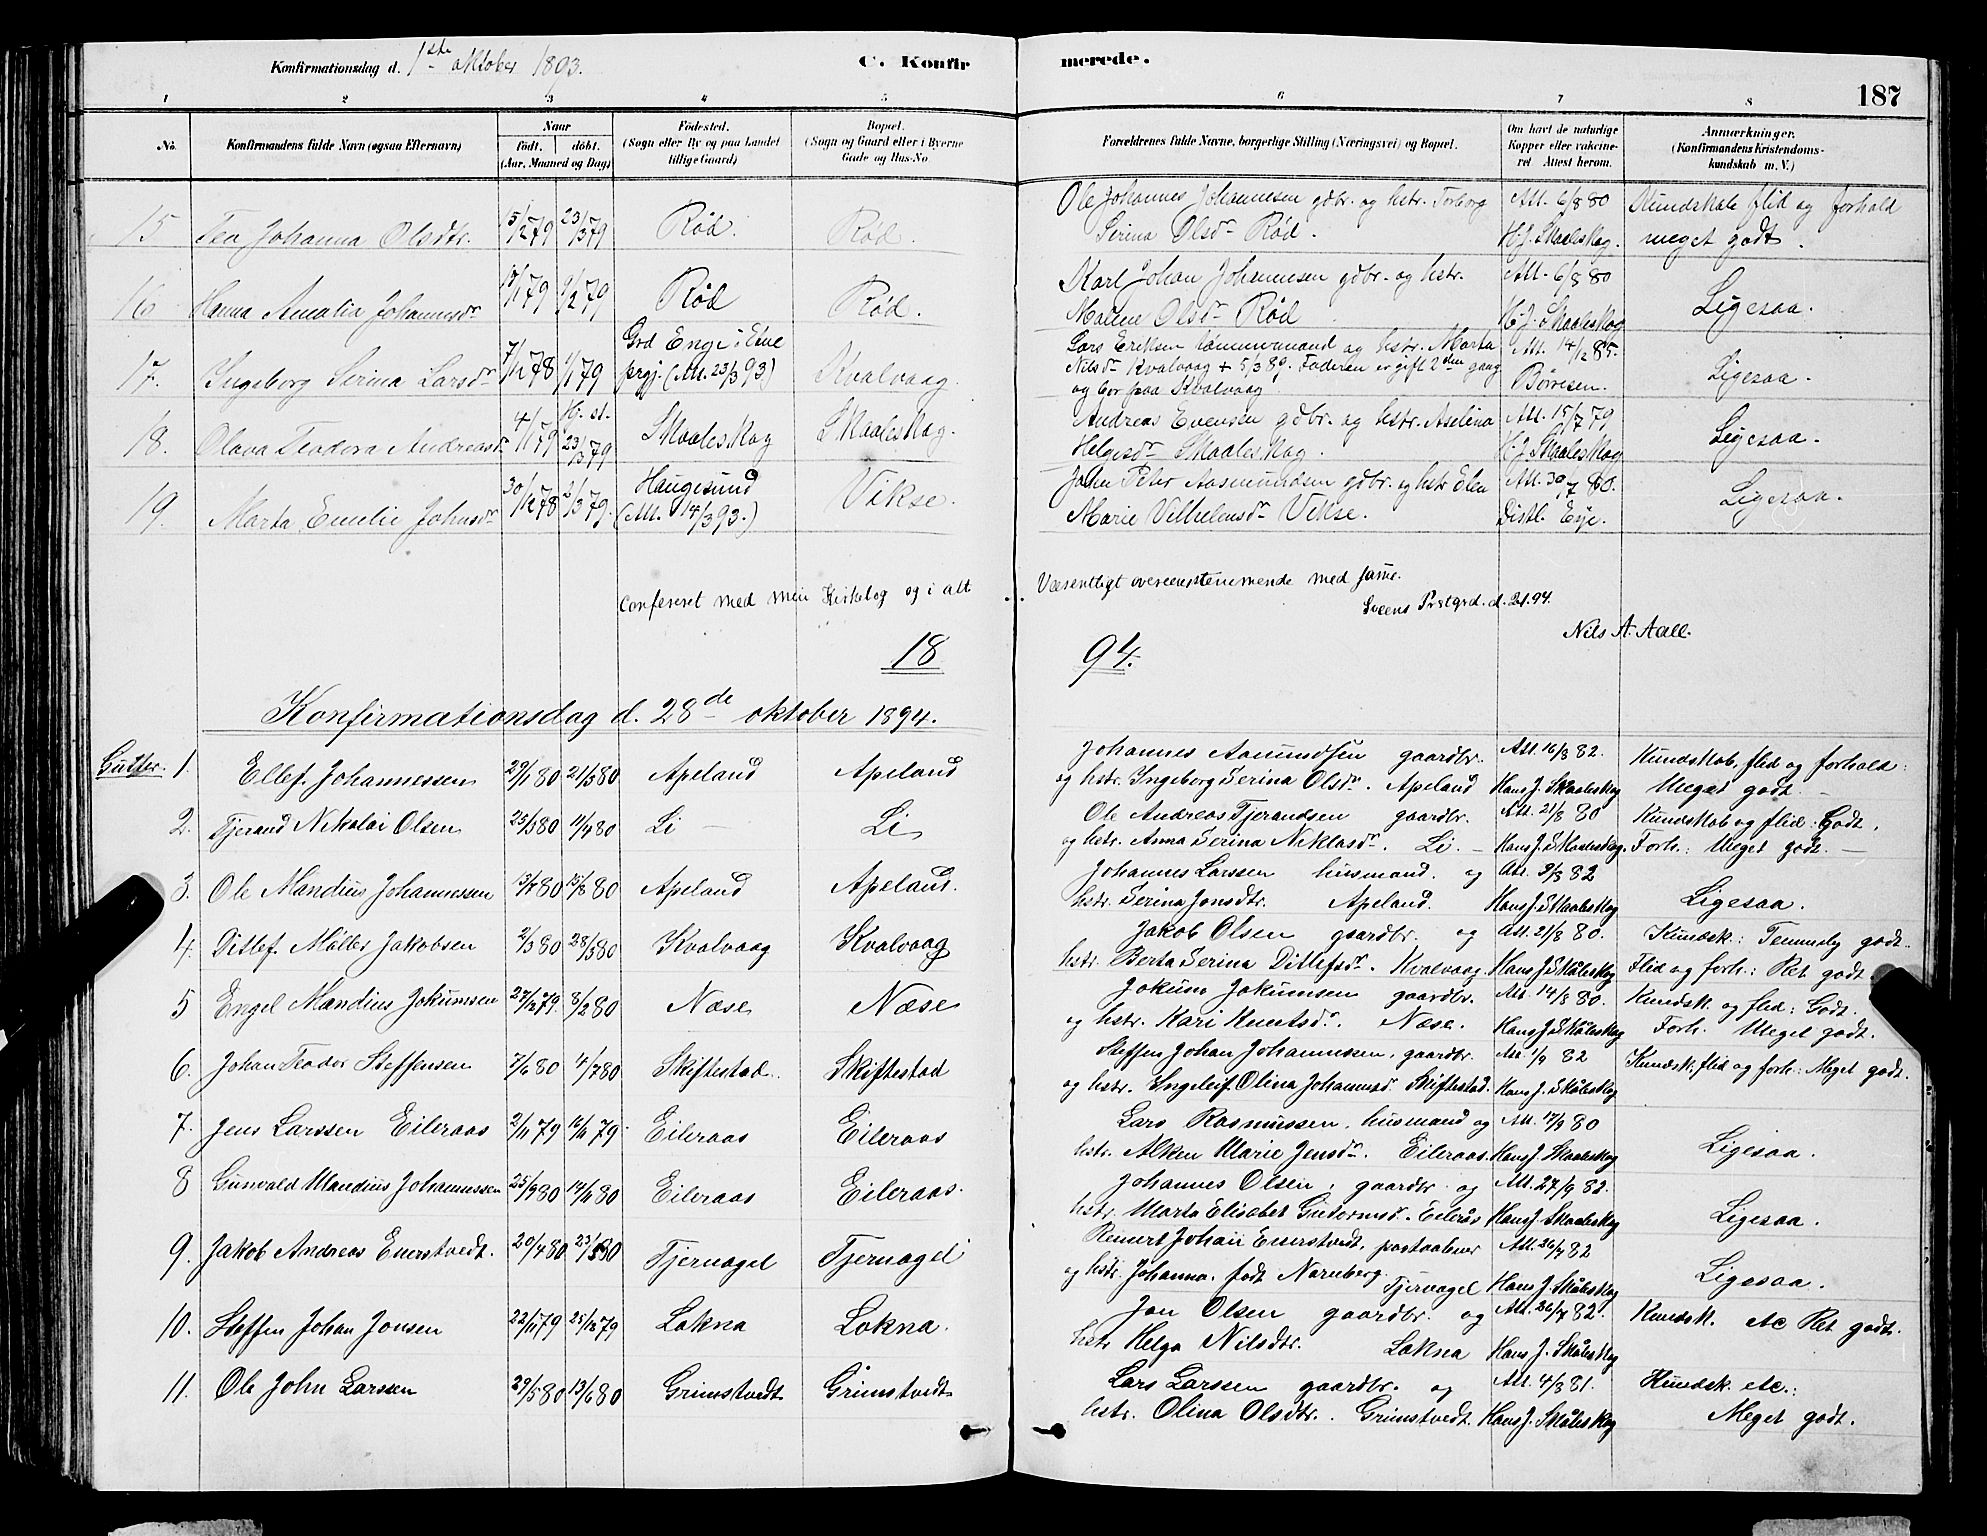 Konfirmationsdag d. 1ste oktober 1893. C. Konfir merede. 187
1 2 3 4 5 6 7 8
No. Konfirmandens fulde Navn (ogsaa Efternavn) Naar født. døbt. (Aar, Maaned og Dag) Fødested. (Sogn eller By og paa Landet tillige Gaard) Bopæl. (Sogn og Gaard eller i Byerne Gade og Hus-No Forældrenes fulde Navne, borgerlige Stilling (Næringsvei) og Bopæl. Om havt de naturlige Kopper eller vakcineret. Attest herom. Anmærkninger. (Konfirmandens Kristendomskundskab m. V.)
15 Tea Johanna Olsdtr. 15/2 79 23/3 79 Rød. Rød. Ole Johannes Johannesen gdbr. og hstr. Torborg Att. 6/8 80 Kundskab flid og forhold
Serina Olsdr Rød. H.J. Skaaleskog. meget godt.
16 Hanna Amalia Johannesdr 17/1 79 9/2 79 Rød Rød. Karl Johan Johannesen gdbr. og hstr. Att. 6/8 80 Ligesaa.
Malene Olsdr Rød H.J. Skaaleskog
17. Ingeborg Serina Larsdr 7/12 78 1/1 79 Grd Enge i Etne Kvalvaag. Lars Eriksen og hstr. Marta Att. 14/12 85. Ligesaa.
prgj. (Att. 23/3 93) Nilsdr Kvalvaag + 5/3 89. Faderen er gift 2den gang Børresen.
og bor paa Kvalvaag
18. Olava Teodora Andreasdr 4/1 79 Hj. st. 23/3 79 Skaaleskog Skaaleskog. Andreas Evensen gdbr. og hstr. Aselina Att. 15/7 79 Ligesaa.
Helgesdr Skaaleskog. H.J. Skaaleskog
19. Marta Emelie Johnsdr 30/12 78 2/3 79. Haugesund Vikse. John Peter Aasmundsen gdbr. og hstr. Elen Att. 30/7 80. Ligesaa.
(Att. 14/3 93.) Marie Vilhelmsdr Vikse. Distl. Esje.
Confereret med min Kirkebog og i alt Væsentligt overeensstemmende med samme.
Sveens Prstgrd. d. 2/1. 94.
Nils A. Aall.
18 94.
Konfirmationsdag d. 28de oktober 1894.
Gutter. 1. Ellef Johannessen 29/1 80 21/3 80 Apeland Apeland Johannes Aamundsen gaardbr. Att. 16/8 82. Kundskab, flid og forhold:
og hstr. Ingeborg Serina Olsdr. Apeland Hans J. Skaaleskog Meget godt. —
2. Tjerand Nikolai Olsen 23/3 80 11/4 80 Li — Li Ole Andreas Tjerandsen gaardbr. Att. 21/8 80 Kundskab og flid: Godt.
og hstr. Anna Serina Niklasdr. Li. — Hans J. Skaaleskog. Forh.: Meget godt. —
3. Ole Mandius Johannessen 13/7 80 15/8 80 Apeland Apeland. Johannes Larssen husmand. og Att. 9/8 82 Ligesaa.
hstr. Serina Jonsdtr. Apeland. Hans J. Skaaleskog
4. Ditlef Møller Jakobsen 2/3 80 28/3 80 Kvalvaag Kvalvaag Jakob Olsen gaardbr. og Att. 21/8 80. Kundsk.: Temmelig godt.
hstr. Berta Serina Ditlefsdr. Kvalvaag. Hans J. Skåleskog Flid og forh.: Ret godt.
5 Engel Mandius Jokumsen 27/12 79. 8/2 80 Næse Næse Jokum Jokumsen gaardbr. Att. 14/8 80. Kundsk. og flid: Godt.
og hstr. Kari Knutsdr. Næse. Hans J. Skåleskog Forh. Meget godt.
6. Johan Teodor Steffensen 7/6 80 4/7 80 Skiftestad. Skiftestad Steffen Johan Johannessen, gaardbr. Att. 1/9 82 Kundsk, flid og forh.: Meget godt.
og hstr. Engeleif Olina Johannesdr Skiftestad. Hans J. Skåleskog
7. Jens Larssen Eileraas 2/11 79 16/11 79. Eileraas Eileraas Lars Rasmussen, husmand og Att. 17/9 80 Ligesaa.
hstr. Alken Marie Jensdr. Eileraas. Hans J. Skaaleskog
8 Gunvald Mandius Johannessen 25/9 80 14/11 80 Eileraas Eileraas. Johannes Olsen, gaardbr. og Att. 27/9 82. Ligesaa.
hstr. Marta Elisabet Gutormsdr. Eilerås Hans J. Skaaleskog
9. Jakob Andreas Enerstvedt. 20/4 80 23/5 80 Tjernagel Tjernagel Reinert Johan Enerstvedt, postaabner Att. 26/7 82 Ligesaa.
og hstr. Johanna, født Nornberg. Tjernagel Hans J. Skåleskog
10. Steffen Johan Jonsen 22/11 79 25/12 79 Lokna Lokna. Jon Olsen gaardbr. og Att. 26/7 82. Kundsk. etc Ret godt.
hstr. Helga Nilsdtr. Lokna Hans J. Skåleskog
11. Ole John Larssen 29/5 80 13/6 80 Grimstvedt Grimstvedt Lars Larssen gaardbr. og Att. 4/8 81. Kundsk. etc.:
hstr. Olina Olsdtr. Grimstvedt. Hans J. Skåleskog Meget godt.